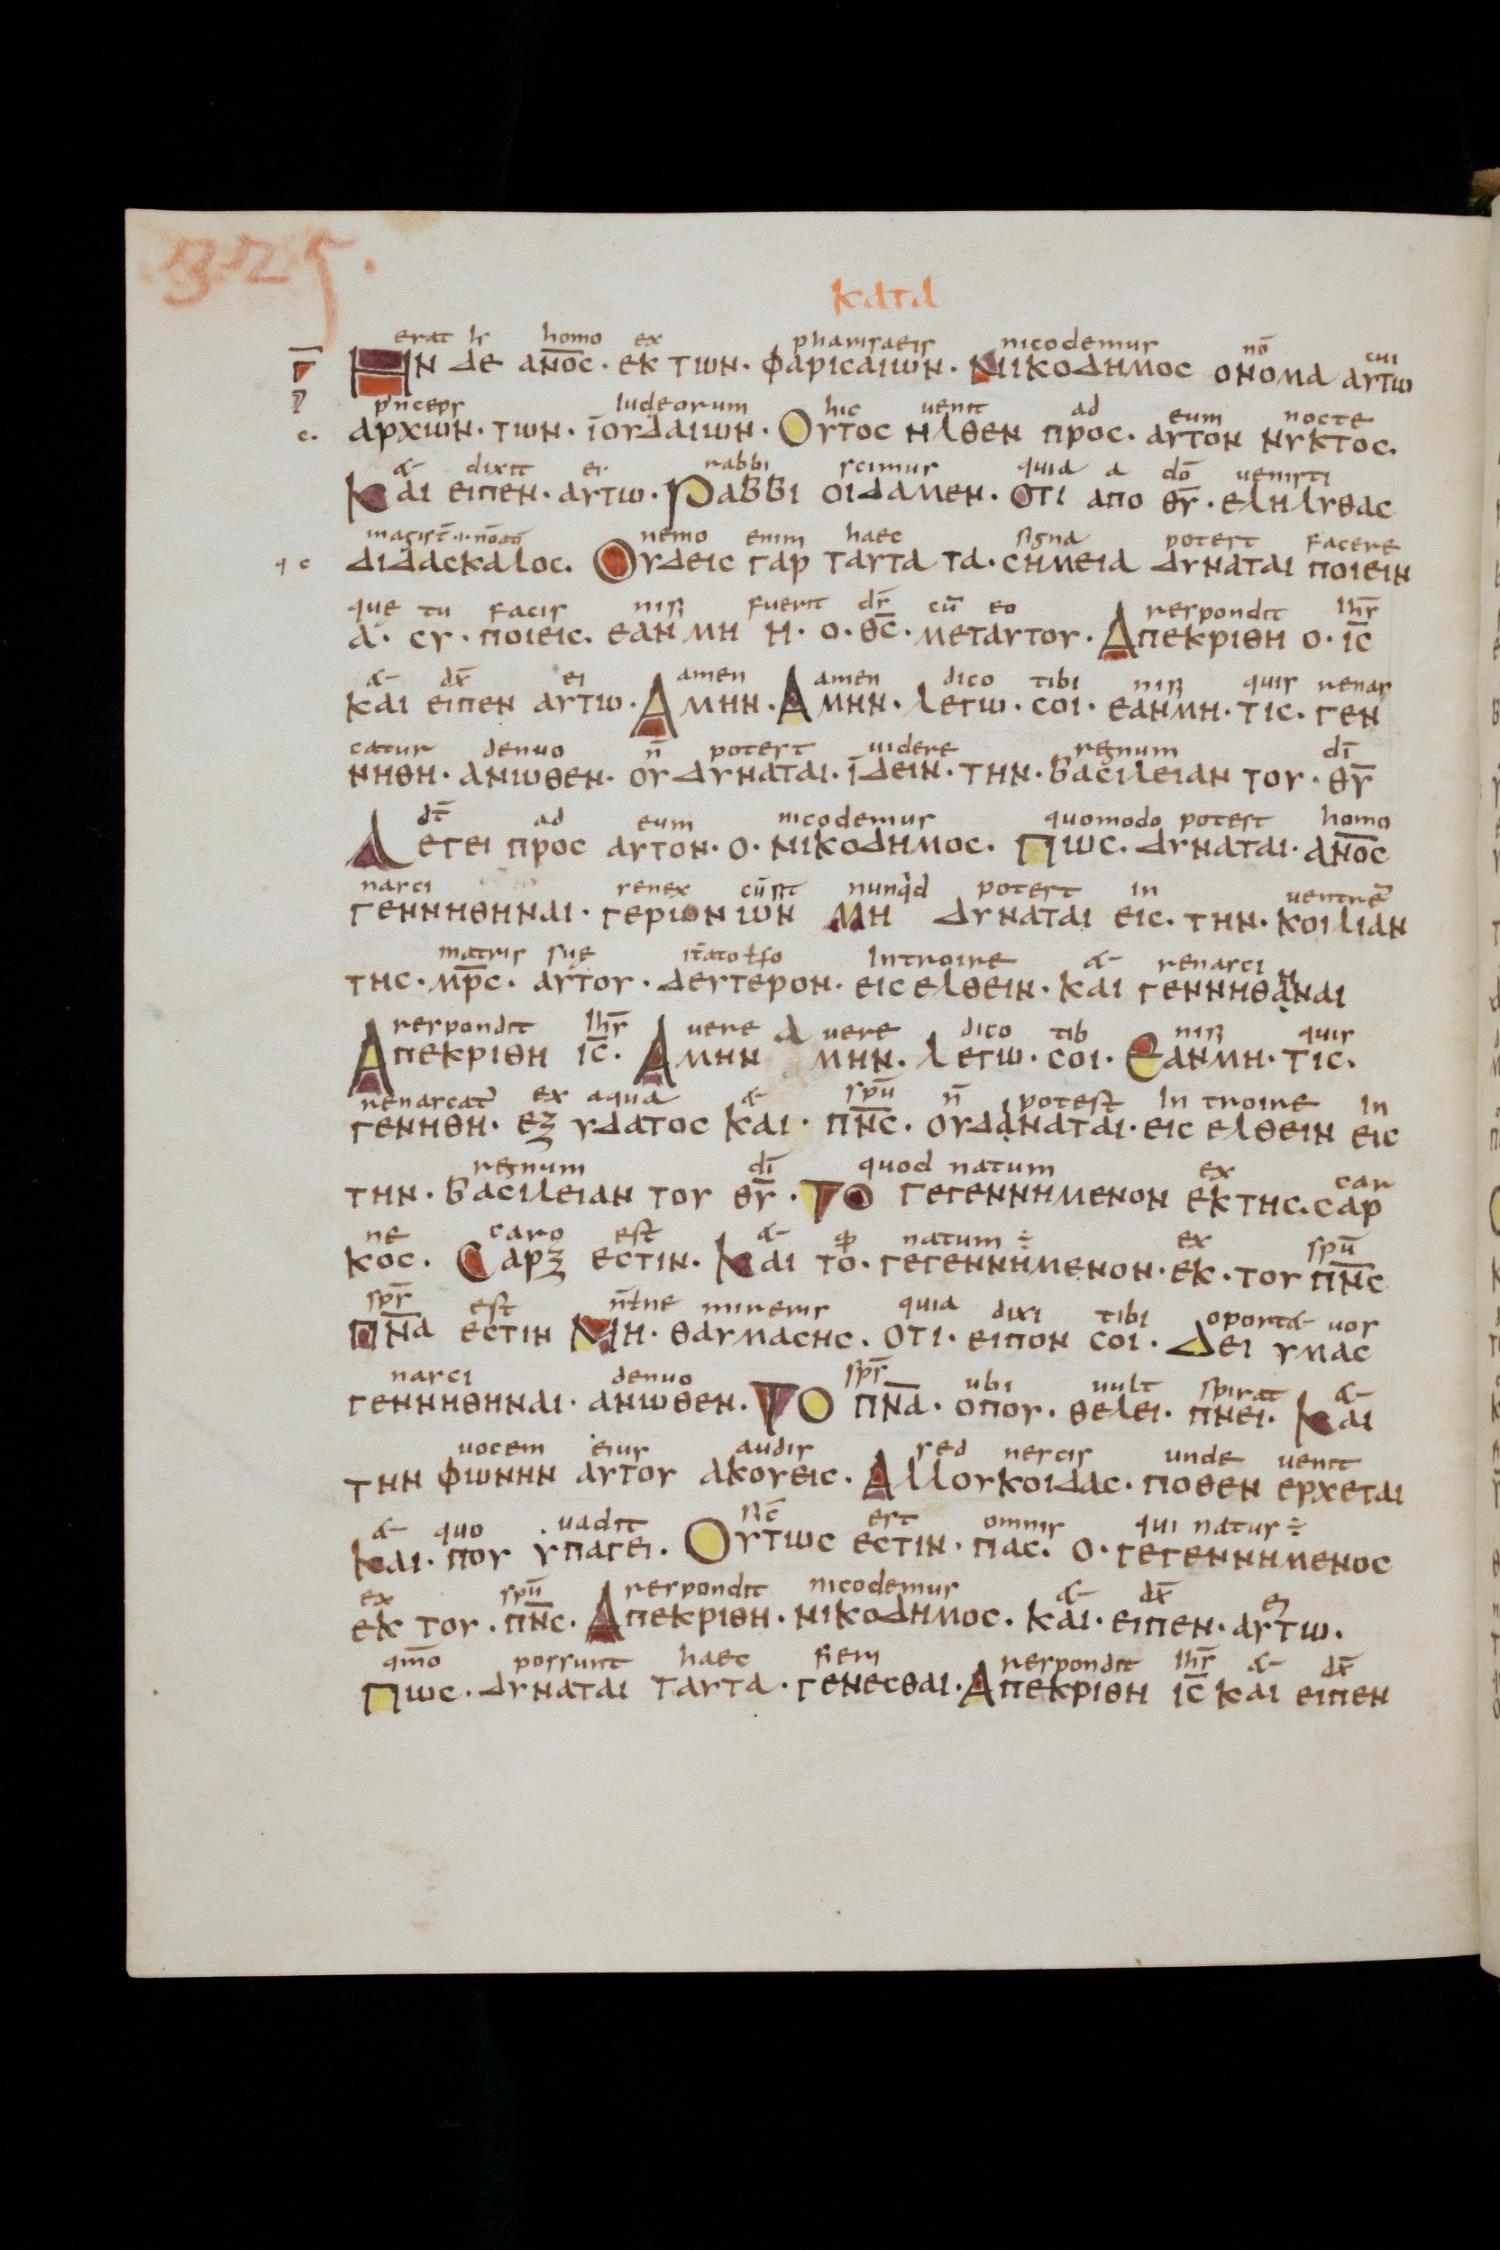 325.
κατα
erat h̄ homo ex pharisaeis nicodemus nō cui
Γ ΗΝ Δε αΝ̄ΟC · εΚ ΤωΝ · ΦαΡΙCαΙωΝ · ΝΙΙΚΟΔΗΜΟC ΟΝΟΜα αΥΤω
p'nceps iudeorum hic uenit ad eum nocte
c. αΡΧωΝ · ΤωΝ · ΪΟΥΔαΙωΝ · ΟΥΤΟC ΗλΘεΝ ΠΡΟC · αΥΤΟΝ ΝΥΚΤΟC.
& dixit ei rabbi scimus quia a dō uenisti
ΚαΙ εΙΠεΝ · αΥΤω · ΡαΒΒΙ ΟΙΔαΜεΝ · ΟΤΙ αΠΟ Θ̄Υ · εληλΥΘαC
nemo enim haec signa potest facere
ΔΙΔαCΚαλΟC. ΟΥΔεΙC ΓαΡ ΤαΥΤα Τα · CΗΜεΙα ΔΥΝαΤαΙ ΠΟΙεΙΝ
quę tu facis nisi fuerit d̄s cū eo respondit ih̄s
α · CΥ · ΠΟΙεΙC. εαΝ ΜΗ Η · Ο · Θ̄C · ΜεΤαΥΤΟΥ · αΠεΚΡΙΘΗ Ο · ῙC
& dx̄ ei amen amen dico tibi nisi quis renas
ΚαΙ εΙΠεΝ αΥΤω · αΜΗΝ · αΜΗΝ · λεΓω · CΟΙ · εαΝΜΗ · ΤΙC · ΓεΝ
catur denuo n̄ potest uidere regnum dī
ΝΗΘΗ · αΝωΘεΝ · ΟΥ ΔΥΝαΤαΙ · ΪΔεΙΝ · ΤΗΝ · ΒαCΙλεΙαΝ ΤΟΥ · Θ̄Υ
dt̄ ad eum nicodemus quomodo potest homo
λεΓεΙ ΠΡΟC αΥΤΟΝ · Ο · ΝΙΚΟΔΗΜΟC. ΠωC. ΔΥΝαΤαΙ · αΝ̄ΟC
narci senex cū sit nunq̇d potest in uentrē
ΓεΝΝΗΘΗΝαΙ · ΓεΡωΝ ωΝ ΜΗ ΔΥΝαΤαΙ εΙC. ΤΗΝ · ΚΟΙλΙαΝ
matris suę introire & renasci
ΤΗC · Μ̄ΡC · αΥΤΟΥ · ΔεΥΤεΡΟΝ · εΙCελΘεΙΝ · ΚαΙ ΓεΝΝΗΘαΗΝαΙ
respondit ih̄s uere uere dico tib nisi quis
αΠεΚΡΙΘΗ ῙC · αΜΗΝ αΜΗΝ. λεΓω · CΟΙ · εαΝΜΗ · ΤΙC.
renascat' ex aqua & spū n̄ potest in troire in
ΓεΝΗΘΗ · εξ ΥΔαΤΟC ΚαΙ · Π̄ΝC. ΟΥΔαΝαΤαΙ · εΙC ελΘεΙΝ εΙC
regnum dī quod natum ex car
ΤΗΝ · ΒαCΙλεΙαΝ ΤΟΥ Θ̄Υ · ΤΟ ΓεΓεΝΝΗΜεΝΟΝ εΚ ΤΗC. CαΡ
ne caro est & qđ natum ÷ ex spū
ΚΟC. CαΡξ εCΤΙΝ. ΚαΙ ΤΟ · ΓεΓεΝΝΗΜεΝΟΝ · εΚ · ΤΟΥ Π̄ΝC
sp̄s est n̄ ł ne mireris quia dixi tibi oport& uos
Π̄Να εCΤΙΝ ΜΗ · ΘαΥΜαCΗC. ΟΤΙ · εΙΠΟΝ CΟΙ · ΔεΙ ΥΜαC
narci denuo sp̄s ubi uult spirat &
ΓεΝΝΗΘΗΝαΙ · αΝωΘεΝ. ΤΟ Π̄Να · ΟΠΟΥ · ΘελεΙ · ΠΝεΙ. ΚαΙ
uocem eius audis sed nescis unde uenit
ΤΗΝ ΦωΝΗΝ αΥΤΟΥ αΚΟΥεΙC. αλλΟΥΚΟΙΔαC · ΠΟΘεΝ εΡΧεΤαΙ
& quo uadit sic̄ est omnis qui natus ÷
ΚαΙ · ΠΟΥ ΥΠαΓεΙ. ΟΥΤωC εCΤΙΝ · ΠαC. Ο · ΓεΓεΝΝΗΜεΝΟC
ex spū respondit nicodemus & dx̄ ei
εΚ ΤΟΥ · Π̄ΝC. αΠεΚΡΙΘΗ · ΝΙΚΟΔΗΜΟC. ΚαΙ · εΙΠεΝ · αΥΤω.
qm̄o possunt haec fieri respondit ih̄s & dx̄
ΠωC · ΔΥΝαΤαΙ ΤαΥΤα · ΓεΝεCΘαΙ · αΠεΚΡΙΘΗ ῙC ΚαΙ εΙΠεΝ